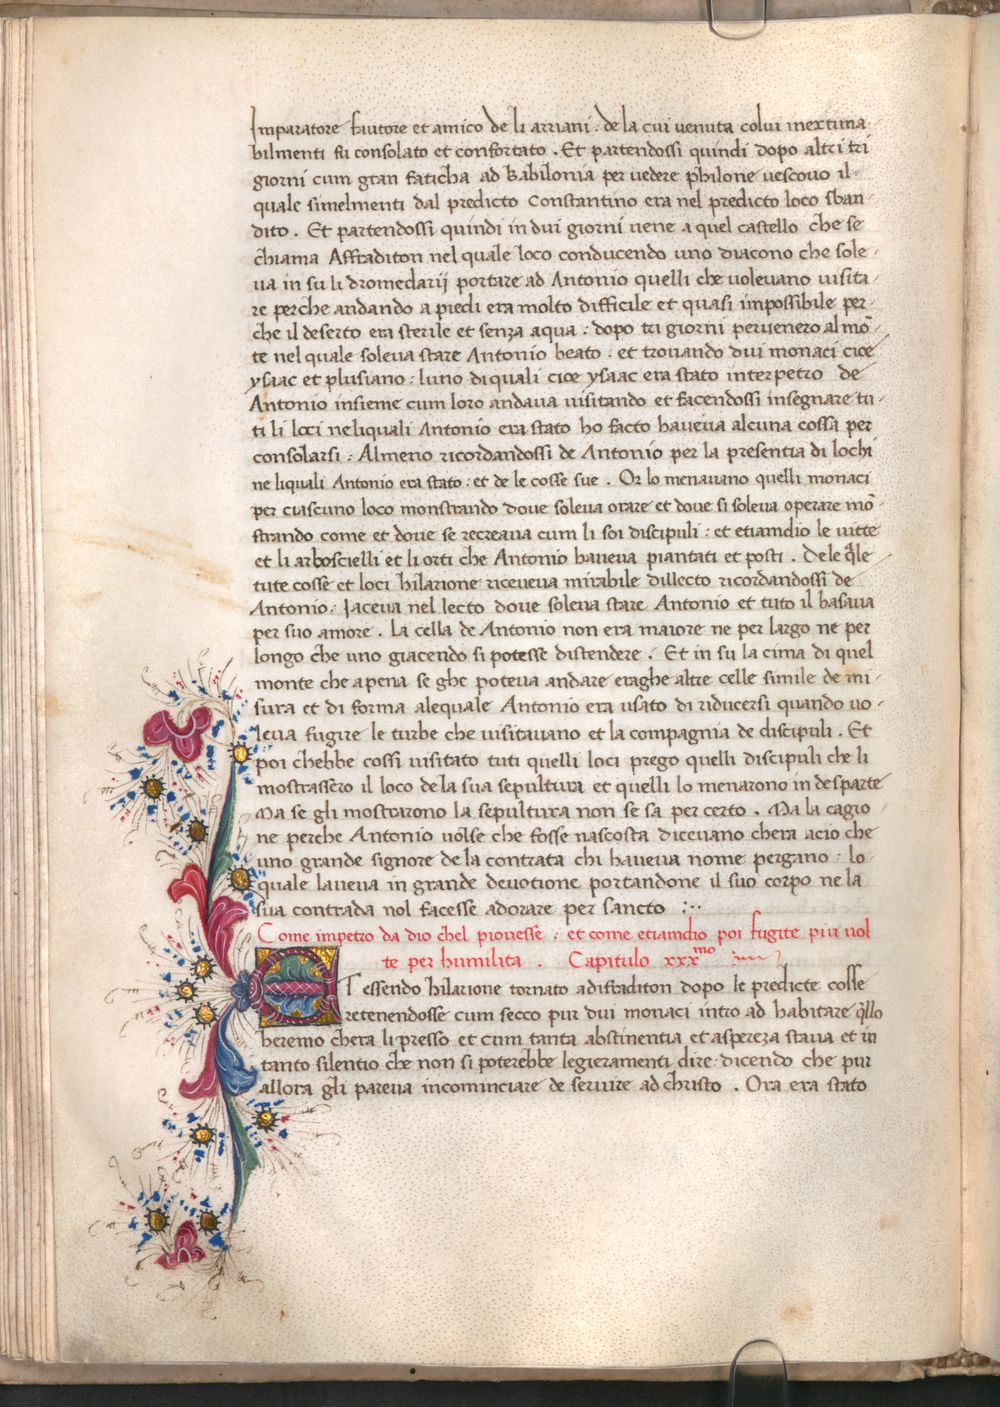 Imparatore fautore et amico de li arriani : de la cui venuta colui inextima-
bilmenti fu consolato et confortato . Et partendossi quindi dopo altri tri
giorni cum gran faticha ad Babilonia per vedere philone vescovo il-
quale simelmenti dal predicto Constantino era nel predicto loco sban-
dito . Et partendossi quindi in dui giorni vene a quel castello che se
chiama Affraditon nel quale loco conducendo uno diacono che sole-
va in su li dromedarij portare ad Antonio quelli che volevano visita-
re perche andando a piedi era molto difficile et quasi impossibile per-
che il deserto era sterile et senza aqua : dopo tri giorni pervenero al mō-
te nel quale soleva stare Antonio beato : et trovando dui monaci cioe
ysaac et plusiano : luno di quali cioe ysaac era stato interpetro de
Antonio insieme cum loro andava visitando et facendossi insegnare tu-
ti li loci neliquali Antonio era stato ho facto haveva alcuna cossa per
consolarsi : Almeno ricordandossi de Antonio per la presentia di lochi
ne liquali Antonio era stato : et de le cosse sue . Or lo menavano quelli monaci
per ciascuno loco monstrando dove soleva orare et dove si soleva operare mō-
strando come et dove se recreava cum li soi discipuli : et etiamdio le vitte
et li arboscielli et li orti che Antonio haveva piantati et posti . Dele q̄le
tute cosse et loci hilarione riceveva mirabile dillecto ricordandossi de
Antonio : Iaceva nel lecto dove soleva stare Antonio et tuto il basava
per suo amore . La cella de Antonio non era maiore ne per largo ne per
longo che uno giacendo si potesse distendere . Et in su la cima di quel
monte che apena se ghe poteva andare eraghe altre celle simile de mi-
sura et di forma alequale Antonio era usato di riducersi quando vo-
leva fugire le turbe che visitavano et la compagnia de discipuli . Et
poi chebbe cossi visitato tuti quelli loci prego quelli discipuli che li
mostrassero il loco de la sua sepultura et quelli lo menarono in desparte
Ma se gli mostrarono la sepultura non se sa per certo . Ma la cagio-
ne perche Antonio volse che fosse nascosta dicevano chera acio che
uno grande signore de la contrata chi haveva nome pergano : lo
quale laveva in grande devotione portandone il suo corpo ne la
sua contrada nol facesse adorare per sancto :
Come impetro da dio chel piovesse : et come etiamdio poi fugite piu vol
te per humilita . Capitulo xxxmo
ET essendo hilarione tornato adiffraditon dopo le predicte cosse
retenendosse cum secco pur dui monaci intro ad habitare q̄llo
heremo chera li presso et cum tanta abstinentia et aspereza stava et in
tanto silentio che non si poterebbe legieramenti dire dicendo che pur
allora gli pareva incominciare de servire ad christo . Ora era stato